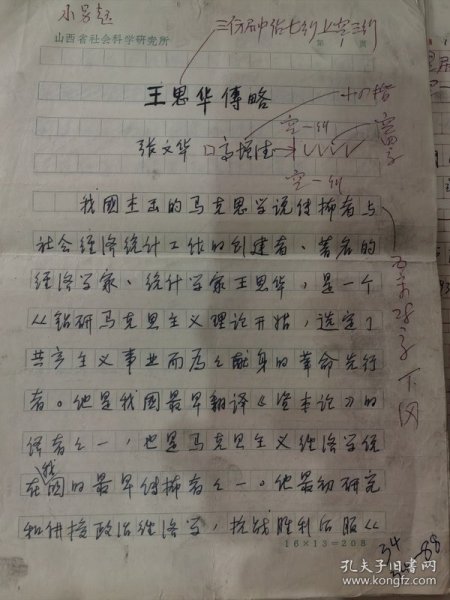 小号超
三仿居中估七行上空三行
山西省社会科学研究所
第 页
王思华傳略
小川楷
空一行
张文华 口高增德
空一行
我國杰出的马克思学说传播者与
社会经济统计工作的创建者、著名的
经济学家、统计学家王思华，是一个
从钻研马克思主义理论开始，选定了
共产主义事业而为之献身的革命先行
者。他是我國最早翻译《资本论》的
译者之一，也是马克思主义经济学说
在我國的最早传播者之一。他最初研究
和讲授政治经济学，抗战胜利后服从
五宋28字下同
16×13=208
54
-88
孔夫子旧书网
kongfz.com